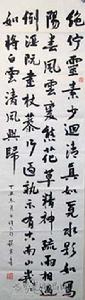 絕佇靈素少迴清真如覓水影如寫
陽春風雲變態花草精神疏雨相過
倒酒既盡杖藜行過孰不有古南山峨峨
如將白雲清風與歸